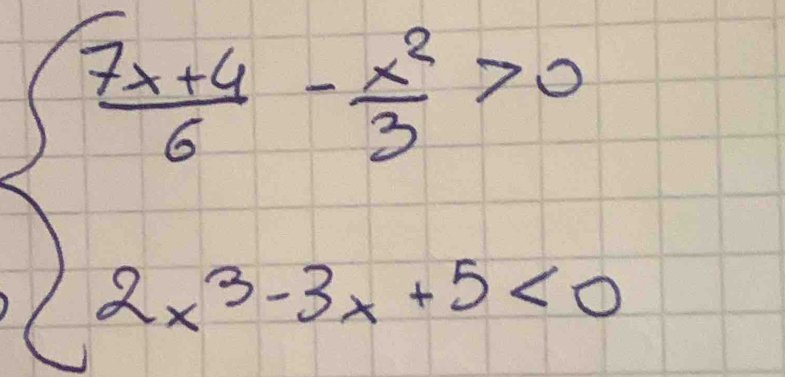 (7x+4)/6 - x²/3 > 0
2x³-3x+5<0